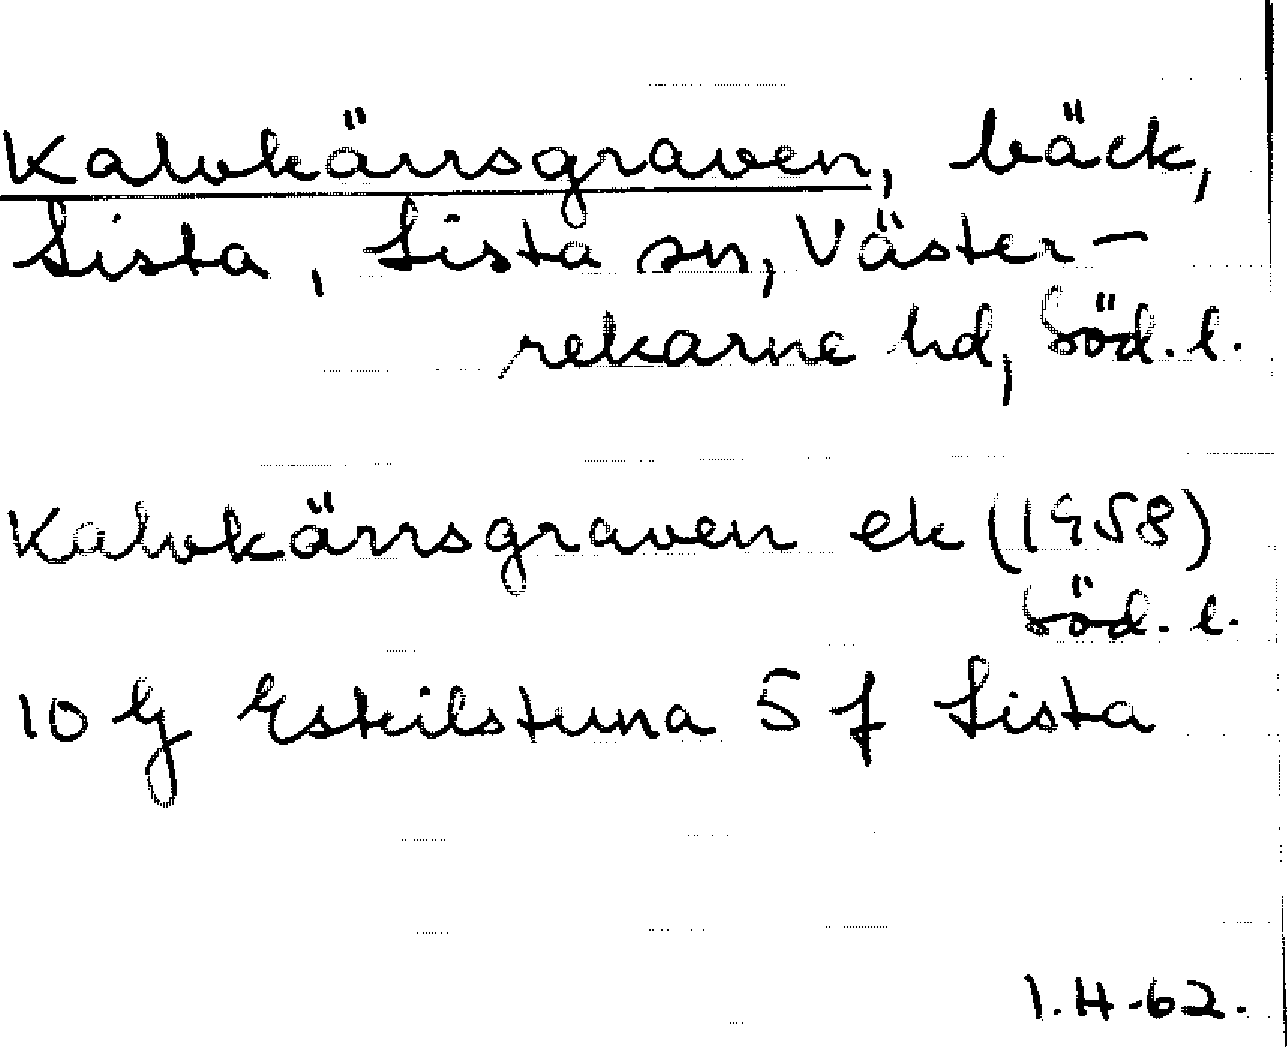 Kalvkärrsgraven, bäck,
Lista, Lista sn, Väster-
rekarne hd, Söd. l.
Kalvkärrsgraven ek (1958)
Söd. l.
10 G Eskilstuna 5 f Lista
I.H-62.